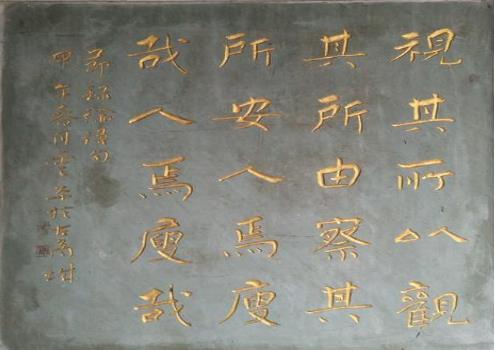 視其所以觀
其所由察其
所安人焉廋
哉人焉廋哉
節録論語句
甲午春月